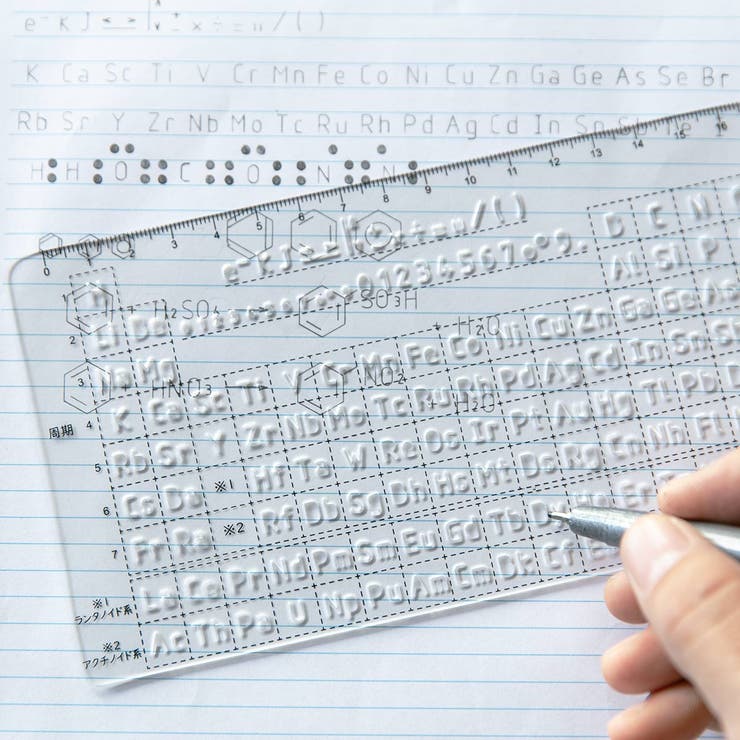 e⁻ K J ÷ = / ( )
K Ca Sc Ti V Cr Mn Fe Co Ni Cu Zn Ga Ge As Se Br
Rb Sr Y Zr Nb Mo Tc Ru Rh Pd Ag Cd In Sn
H H O C O N N
0 1 2 3 4 5 6 7 8 9 10 11 12 13 14 15 16
e⁻ K J ÷ = / ( )
0 1 2 3 4 5 6 7
+ H₂SO₄ → SO₃H + H₂O
+ HNO₃ → NO₂ + H₂O
1 H
2 Li C N
3 Na Mg Al Si P
周期 4 K Ca Sc Ti V Cr Mn Fe Co Ni Cu Zn Ga Ge As
5 Rb Sr Y Zr Nb Mo Tc Ru Rh Pd Ag Cd In Sn
6 Cs ※1 Hf Ta W Re Os Ir Pt Au Hg Tl Pb
7 Fr Ra ※2 Rf Db Sg Hs Mt Ds Rg Cn Nh Fl
※1 ランタノイド系 La Ce Pr Nd Pm Sm Eu Gd Tb Er
※2 アクチノイド系 Ac Th Pa U Np Pu Am Cm Cf